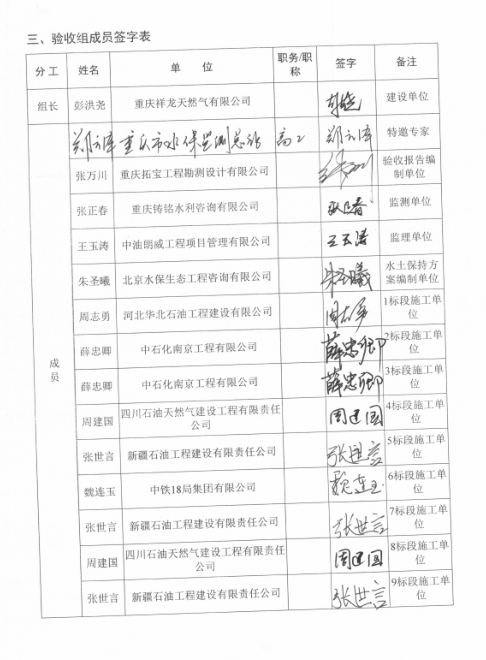 三、验收组成员签字表
分工 姓名 单 位 职务/职称 签字 备注
组长 彭洪尧 重庆祥龙天然气有限公司 建设单位
成员
郑云泽 重庆市水保监测总站 高工 郑云泽 特邀专家
张万川 重庆拓宝工程勘测设计有限公司 验收报告编制单位
张正春 重庆铸铭水利咨询有限公司 监测单位
王玉涛 中油朗威工程项目管理有限公司 王玉涛 监理单位
朱圣曦 北京水保生态工程咨询有限公司 朱圣曦 水土保持方案编制单位
周志勇 河北华北石油工程建设有限公司 1标段施工单位
薛忠卿 中石化南京工程有限公司 薛忠卿 2标段施工单位
薛忠卿 中石化南京工程有限公司 薛忠卿 3标段施工单位
周建国 四川石油天然气建设工程有限责任公司 周建国 4标段施工单位
张世言 新疆石油工程建设有限责任公司 张世言 5标段施工单位
魏连玉 中铁18局集团有限公司 魏连玉 6标段施工单位
张世言 新疆石油工程建设有限责任公司 张世言 7标段施工单位
周建国 四川石油天然气建设工程有限责任公司 周建国 8标段施工单位
张世言 新疆石油工程建设有限责任公司 张世言 9标段施工单位